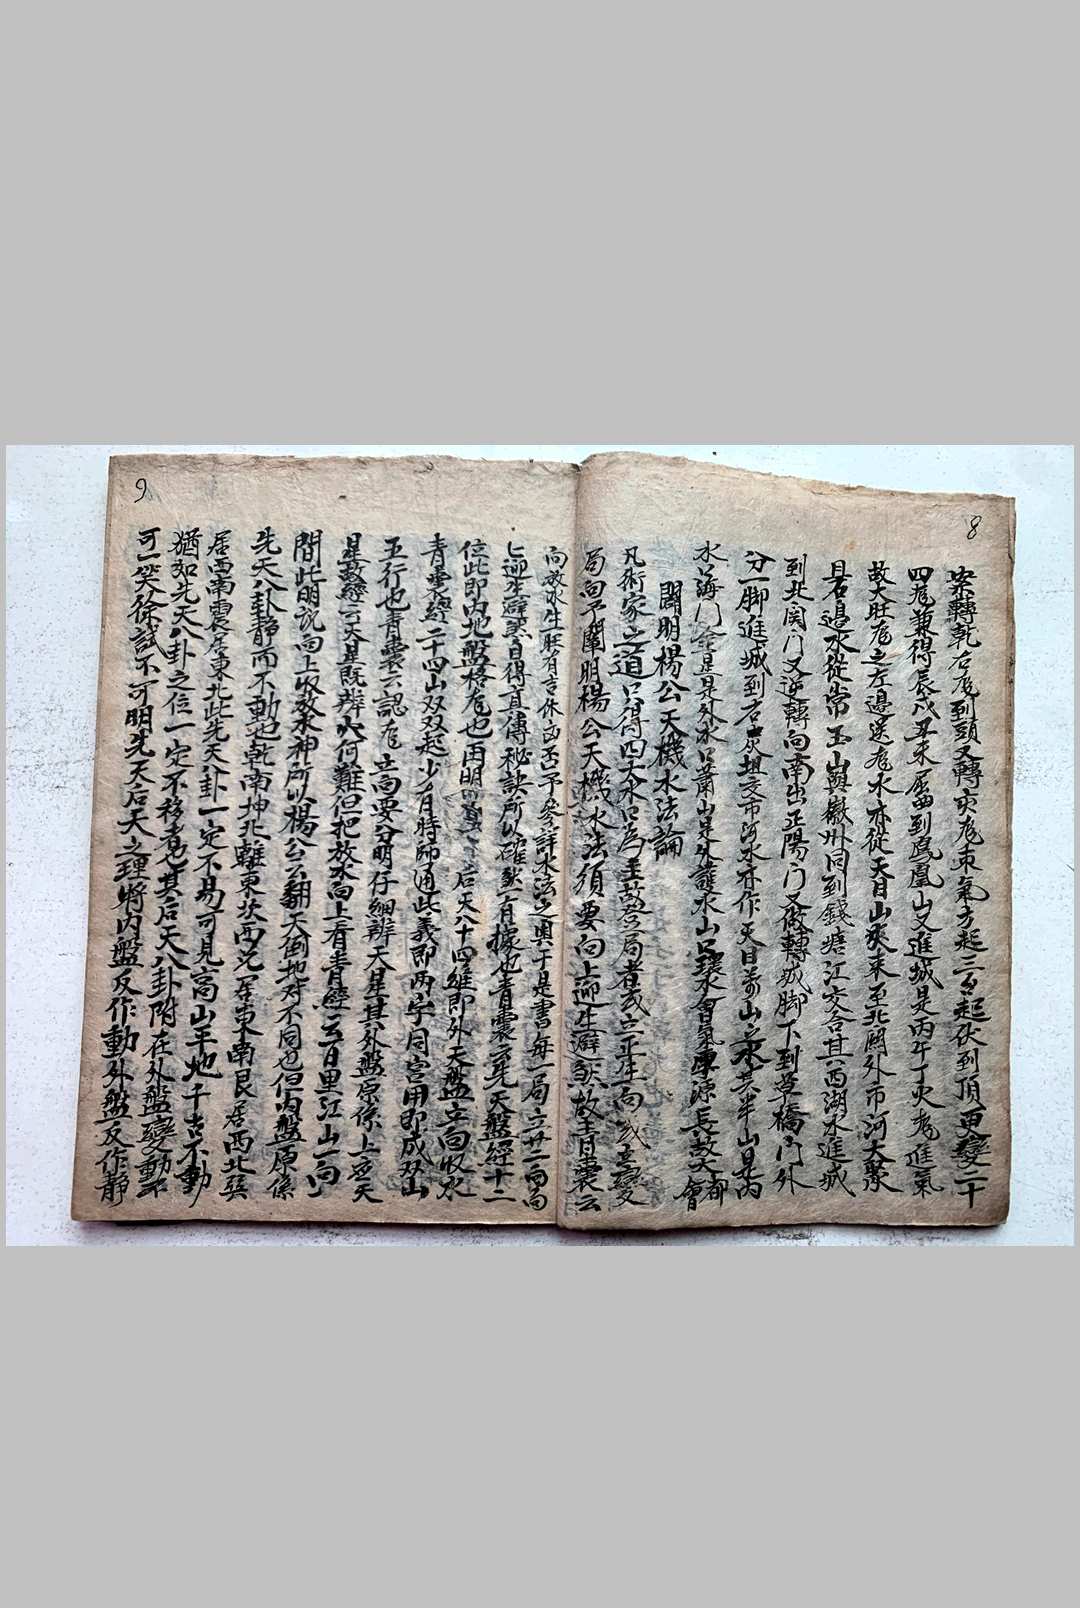 8
案轉乾右尨到頭又轉亥尨束氣方起三台起伏到頂更變二十
四尨兼得辰戌丑未屈曲到鳳凰山又進城是丙午丁火尨進氣
故大旺尨之左邉送尨水亦從天目山發來至北關外市河大聚
是右邉水從常玉山與徽州同到錢塘江交合其西湖水進城
到北関门又逆轉向南出正陽门又倣轉城脚下到草橋门外
分一脚進城到石炭坦交市河水亦作天目萬山之水其半山是內
水海门是外水口蕭山是外護水山只聚水會氣源長故大都會
闡明楊公天機水法論
凡術家之道只得四大水口為主故登局者或立正生向或立變
局向予闡明楊公天機水法須要向上迎生避煞故青囊云
9
向放水生旺有吉休囚否予參詳水法之奧于是書每一局立廿二向向
匕迎生避煞自得真傳秘訣所以確然有據也青囊云先天盤經十二
位此即內地盤格尨也再明后天八十四維即外天盤立向收水
青囊經二十四山双双起少有時師通此義即两字同宫用即成双山
五行也青囊云認尨立向要分明仔細辨天星其外盤原係上至天
星故經云天星既辨穴何難但把放水向上看青經云百里江山一向
間此明説向上收放水神所以楊公云翻天倒地对不同也但內盤原係
先天八卦静而不動也乾南坤北離東坎西兑居東南艮居西北巽
居西南震居東北此先天八卦一定不易可見高山平地千古不動
猶如先天八卦之位一定不移者也其后天八卦附在外盤變動不
可一笑徐試不可明先天后天之理將內盤反作動外盤反作静